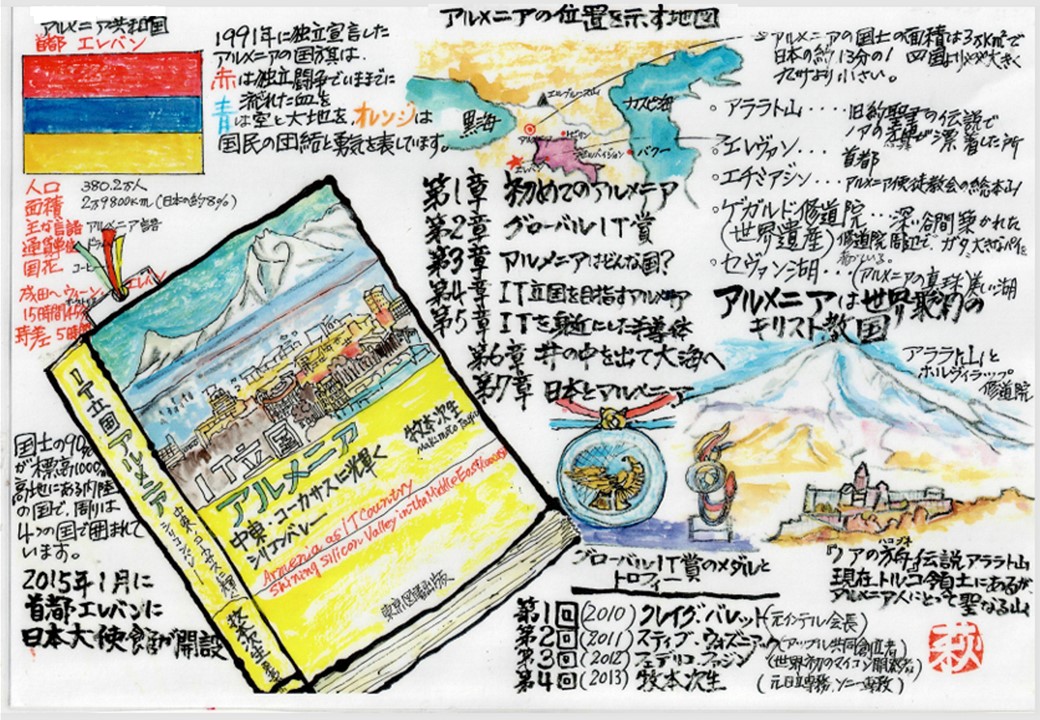 アルメニア共和国
首都 エレバン
1991年に独立宣言した
アルメニアの国旗は、
赤は独立闘争でいままでに
流れた血を
青は空と大地を、オレンジは
国民の団結と勇気を表しています。
人口 380.2万人
面積 2万9800km (日本の約8%)
主な言語 アルメニア語
国花
成田〜ウィーン
エレバン
時差 5時間
国土の90%
が標高1000m
高地にある内陸
の国で、周りは
4つの国で囲まれて
います。
2015年1月に
首都エレバンに
日本大使館が開設
IT立国アルメニア
IT立国
アルメニア
中東・コーカサスに輝く
シリコンバレー
牧本次生
Makimoto Tsugio
Armenia as IT Country
Shining Silicon Valley in the Middle East
東京図書出版
アルメニアの位置を示す地図
黒海
カスピ海
エルブルース山
トビリシ
アゼルバイジャン
バクー
エレバン
第1章 初めてのアルメニア
第2章 グローバルIT賞
第3章 アルメニアはどんな国?
第4章 IT立国を目指すアルメニア
第5章 ITを身近にした半導体
第6章 井の中を出て大海へ
第7章 日本とアルメニア
アルメニアの国土の面積は3万km²で
日本の約13分の1 四国よりやや大きく
九州より小さい。
。アララト山・・・・旧約聖書の伝説で
ノアの方舟が漂着した所
。エレヴァン・・・首都
。エチミアジン・・・アルメニア使徒教会の総本山
。ゲガルド修道院・・深い谷間築かれた
(世界遺産) 修道院
。セヴァン湖・・・(アルメニアの真珠)美しい湖
アルメニアは世界最初の
キリスト教国
アララト山と
ホルヴィラップ
修道院
グローバルIT賞のメダルと
トロフィー
第1回(2010) クレイグ・バレット(元インテル会長)
第2回(2011) スティブ・ウォズニアック(アップル共同創立者)
第3回(2012) フェデリコ・ファジン(世界初のマイコン開発者)
第4回(2013) 牧本次生 (元日立専務、ソニー専務)
ハコブネ
『ノアの方舟』伝説アララト山
現在トルコ領土にあるが、
アルメニア人にとって聖なる山
萩